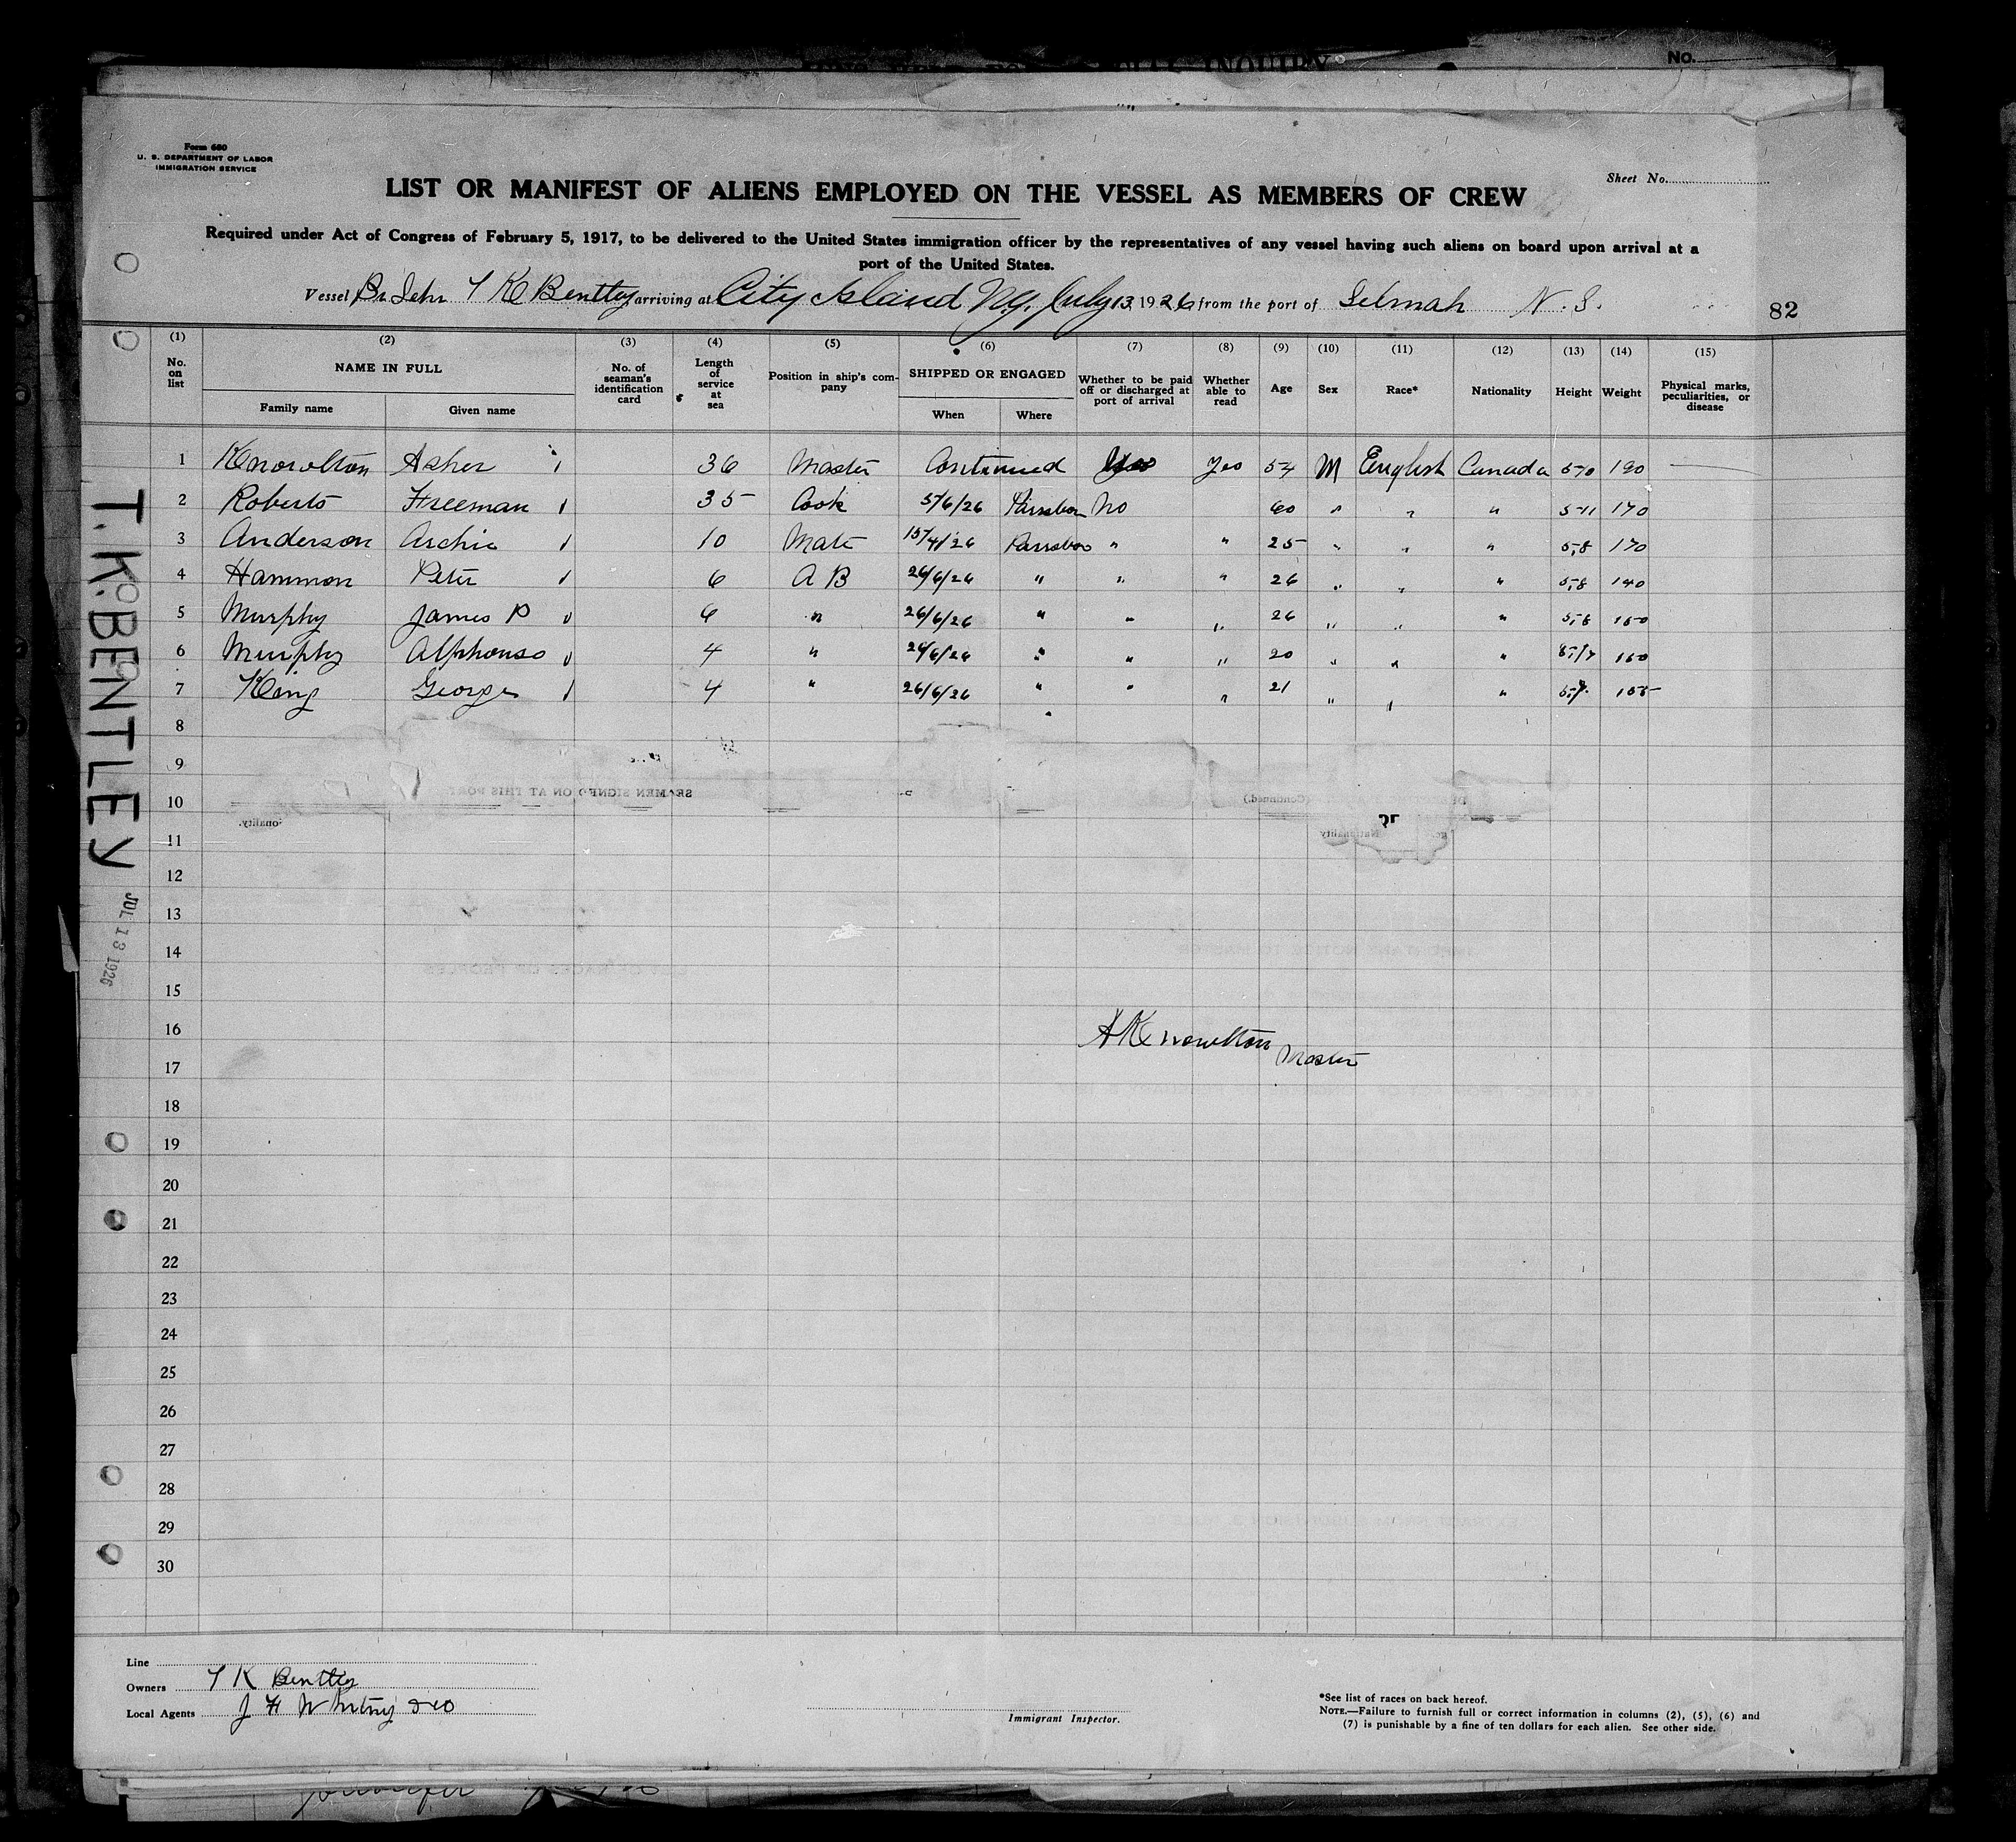 No.
Form 680
U. S. DEPARTMENT OF LABOR
IMMIGRATION SERVICE
Sheet No.
LIST OR MANIFEST OF ALIENS EMPLOYED ON THE VESSEL AS MEMBERS OF CREW
Required under Act of Congress of February 5, 1917, to be delivered to the United States immigration officer by the representatives of any vessel having such aliens on board upon arrival at a
port of the United States.
Vessel Br Schr T K Bentley arriving at City Island N.Y. July 13 1926 from the port of Selmah N. S.
82
(1) (2) (3) (4) (5) (6) (7) (8) (9) (10) (11) (12) (13) (14) (15)
No. on list NAME IN FULL Family name Given name No. of seaman's identification card Length of service at sea Position in ship's company SHIPPED OR ENGAGED When Where Whether to be paid off or discharged at port of arrival Whether able to read Age Sex Race* Nationality Height Weight Physical marks, peculiarities, or disease
1 Knowlton Asher 36 Master Continued Yes 54 M English Canada 190
2 Roberts Freeman 35 Cook 5/6/26 Parrsboro No 60 " " " 5-11 170
3 Anderson Archie 10 Mate 15/4/26 Parrsboro " " 25 " " " 5,8 170
4 Hammon Peter 6 A B 26/6/26 " " " 26 " " " 5,8 140
5 Murphy James P 6 " 26/6/26 " " " 26 " " " 5,8 150
6 Murphy Alphonso 4 " 26/6/26 " " " 20 " " " 150
7 King George 4 " 26/6/26 " " " 21 " " " 155
8
9
10
11
12
13
14
15
16
17
18
19
20
21
22
23
24
25
26
27
28
29
30
A Knowlton Master
T. K. BENTLEY
JUL 13 1926
SEAMEN SIGNED ON AT THIS PORT
(Continued.)
Nationality
Line
Owners T K Bentley
Local Agents J F Whitney & Co
Immigrant Inspector.
*See list of races on back hereof.
NOTE.—Failure to furnish full or correct information in columns (2), (5), (6) and
(7) is punishable by a fine of ten dollars for each alien. See other side.